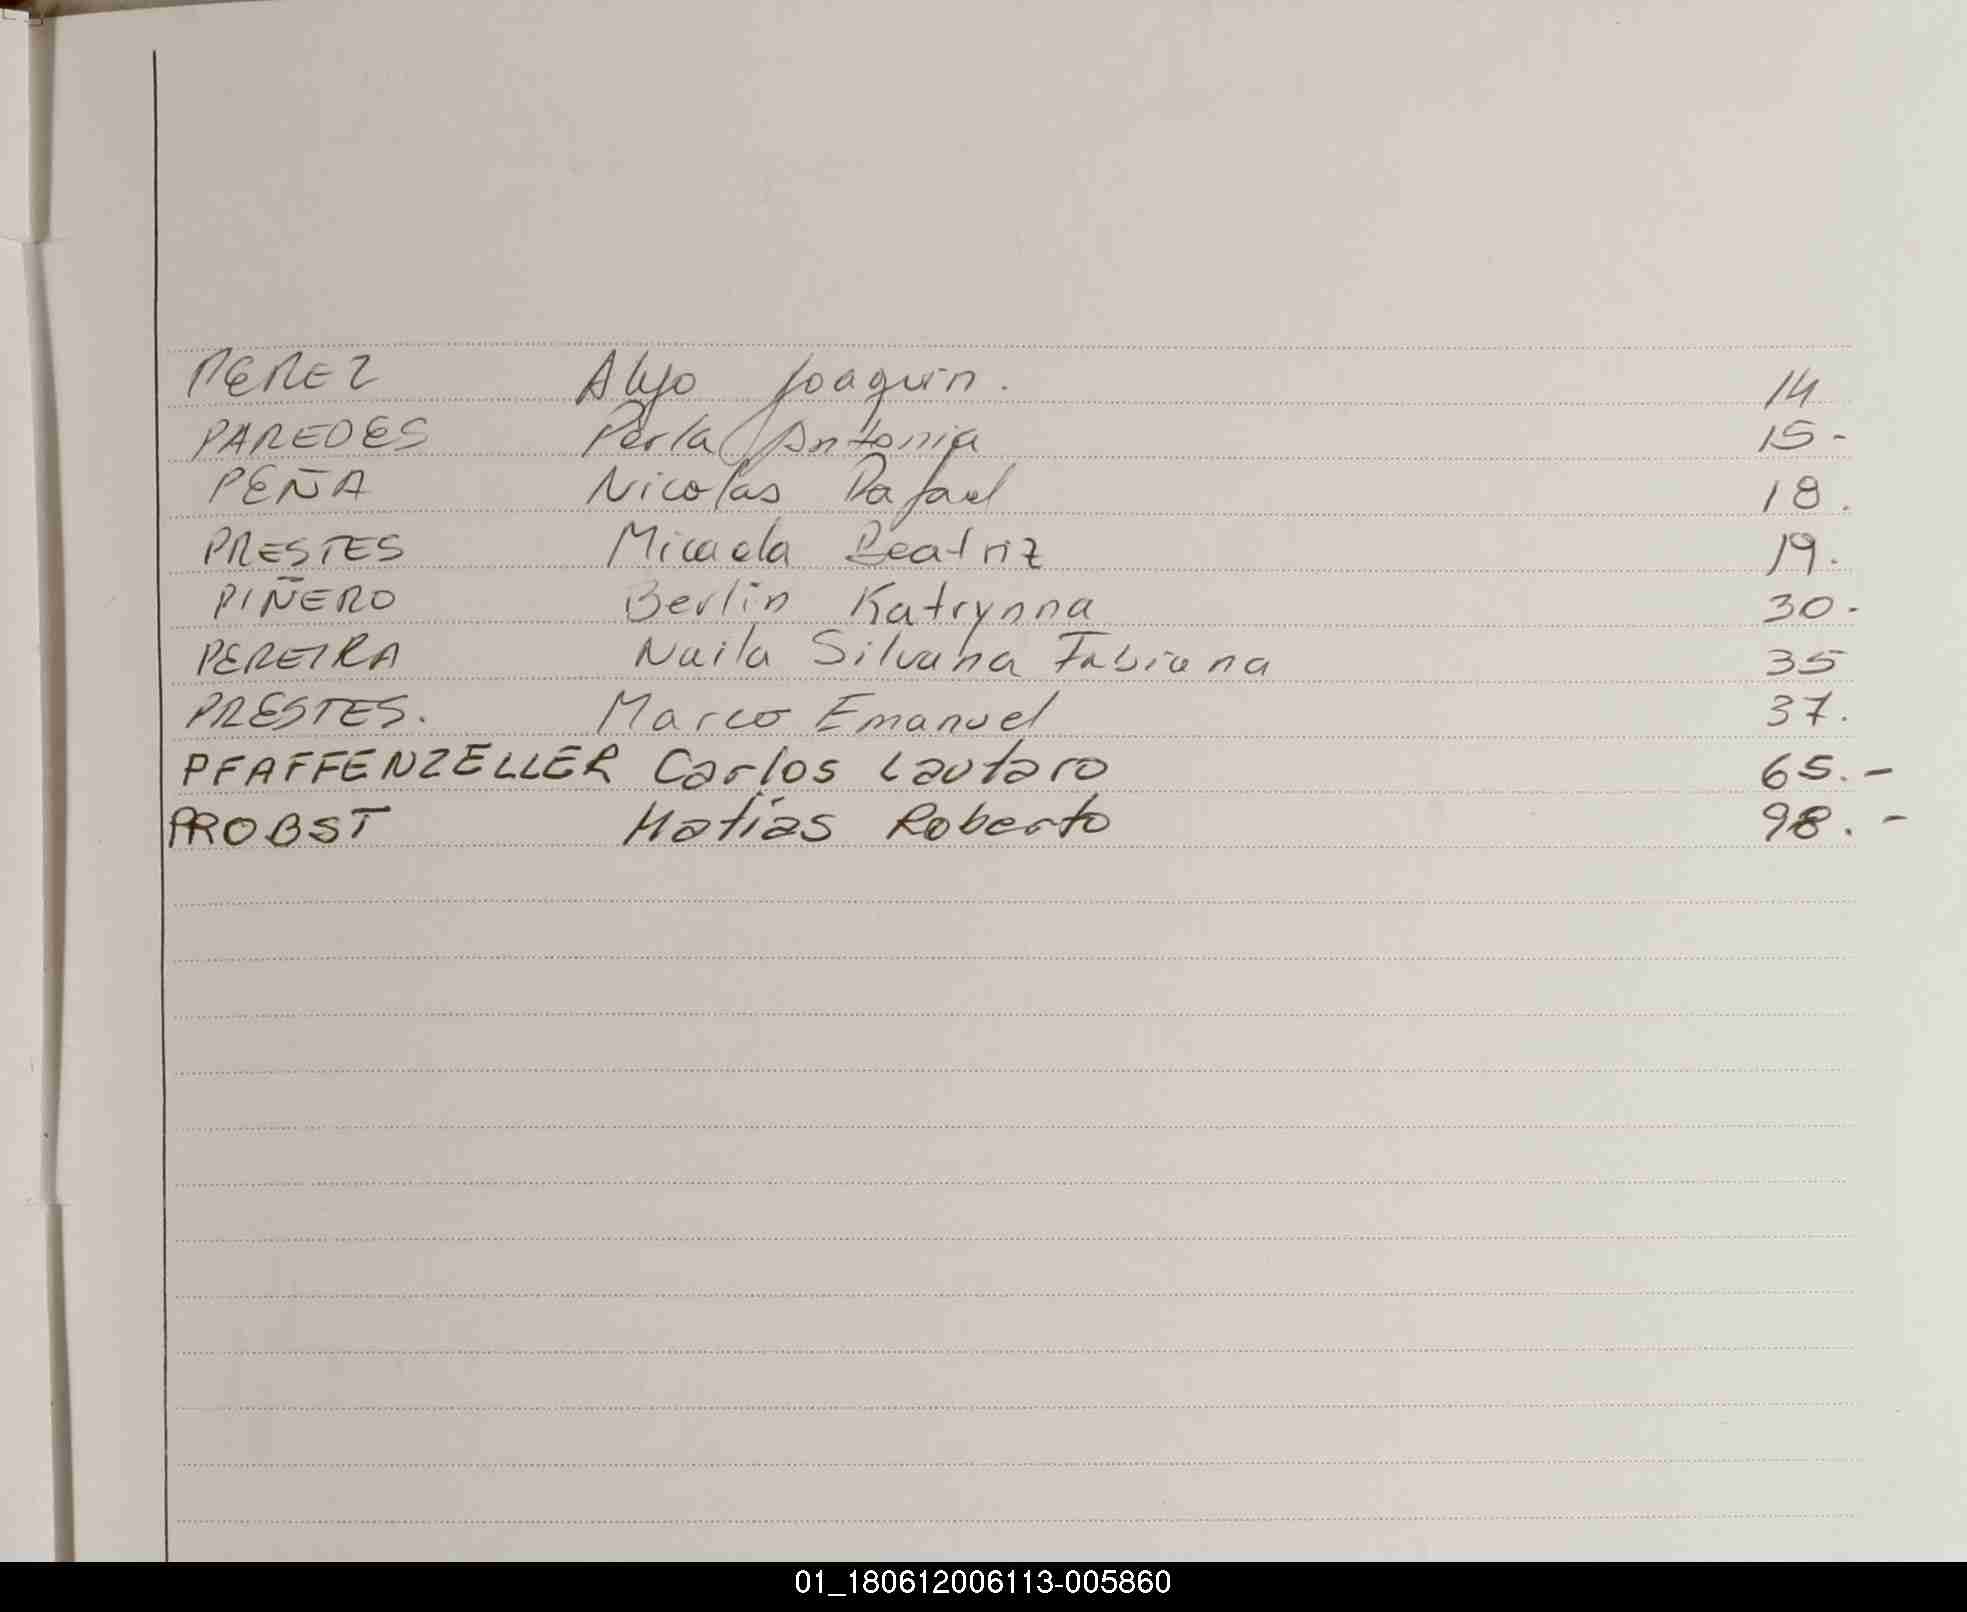 PEREZ Alejo Joaquin. 14
PAREDES Perla Antonia 15-
PEÑA Nicolas Rafael 18.
PRESTES Micaela Beatriz 19.
PIÑERO Berlin Katrynna 30-
PEREIRA Naila Silvana Fabiana 35
PRESTES. Marco Emanuel 37.
PFAFFENZELLER Carlos Lautaro 65.-
PROBST Matías Roberto 98.-
01_180612006113-005860